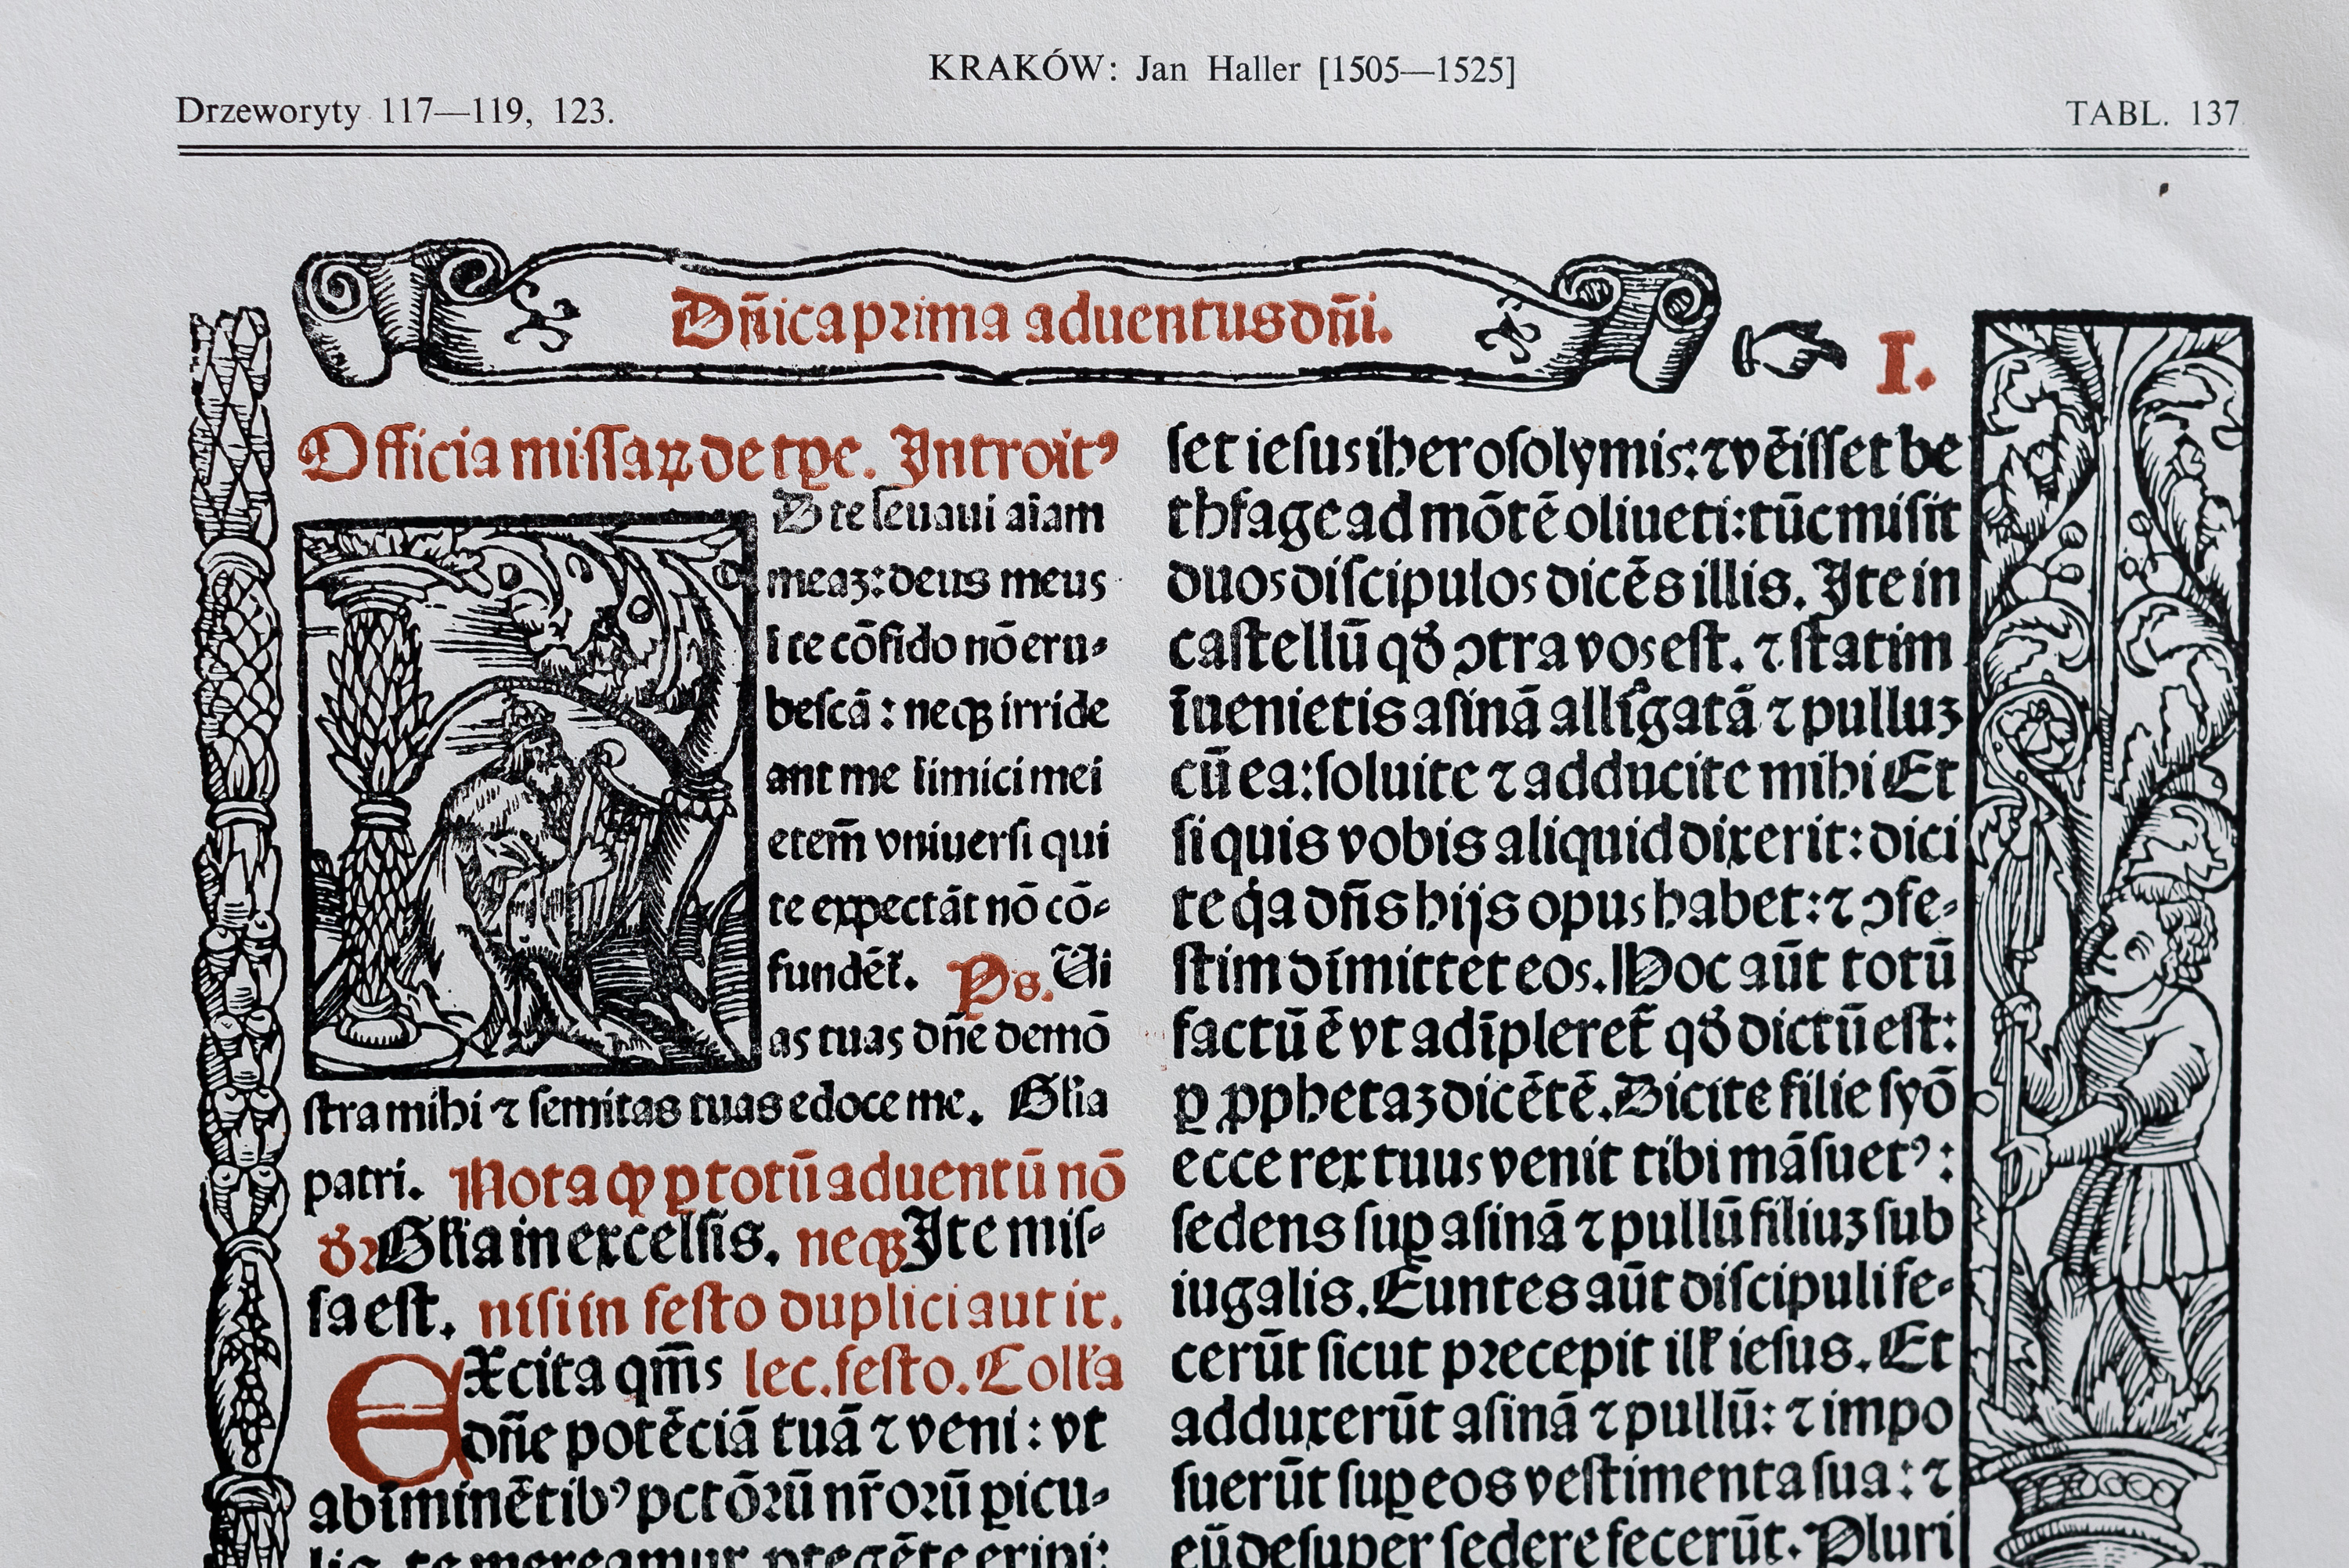 KRAKÓW: Jan Haller [1505—1525]
Drzeworyty 117—119, 123.
TABL. 137
Dñica prima aduentus dñi.
I.
Officia missaꝝ de tp̱e. Introitꝰ
D te leuaui aīam
meaꝫ: deus meus
ī te cōfido nō eru⸗
bescā: neqꝫ irride
ant me īimici mei
etem̄ vniuersi qui
te expectāt nō cō⸗
fundēt̄. Ps. Ui
as tuas dñe demō
stra mihi ⁊ semitas tuas edoce me. Glīa
patri. Nota ꝙ ꝑ totū aduentū nō
dꝛ Glīa in excelsis. neqꝫ Ite mis⸗
sa est. nisi in festo duplici aut ir.
Excita qm̄s lec. festo. Coll'a
dñe potēciā tuā ⁊ veni: vt
ab īminētibꝰ pctōꝛū nr̄oꝛū ꝑicu⸗
lis te mereamur ptegēte eripi:
set iesus iherosolymis: ⁊ vēisset be
thfage ad mōtē oliueti: tūc misit
duos discipulos dicēs illis. Ite in
castellū qđ ꝯtra vos est. ⁊ statim
īuenietis asinā alligatā ⁊ pulluꝫ
cū ea: soluite ⁊ adducite mihi Et
si quis vobis aliquid dixerit: dici
te qa dñs hijs opus habet: ⁊ ꝯfe⸗
stim dimittet eos. Hoc aūt totū
factū ē vt adīpleret̄ qđ dictū est:
ꝑ ꝓphetaꝫ dicētē. Dicite filie syō
ecce rex tuus venit tibi māsuetꝰ:
sedens suꝑ asinā ⁊ pullū filiuꝫ sub
iugalis. Euntes aūt discipuli fe⸗
cerūt sicut pꝛecepit ill' iesus. Et
adduxerūt asinā ⁊ pullū: ⁊ impo
suerūt suꝑ eos vestimenta sua: ⁊
eū desuper sedere fecerūt. Pluri